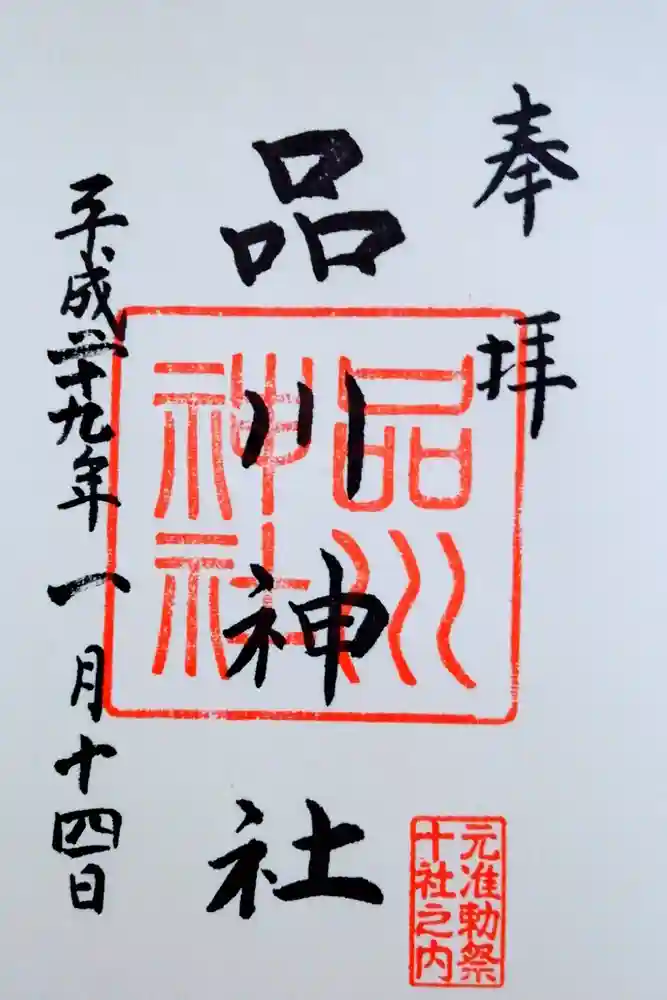 奉拝
品川神社
平成二十九年一月十四日
品川
神社
元准勅祭
十社之内